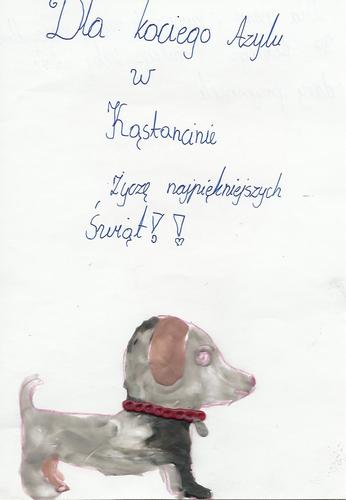 Dla kociego Azylu
w
Kąstancinie
Życzę najpiękniejszych
Świąt!!